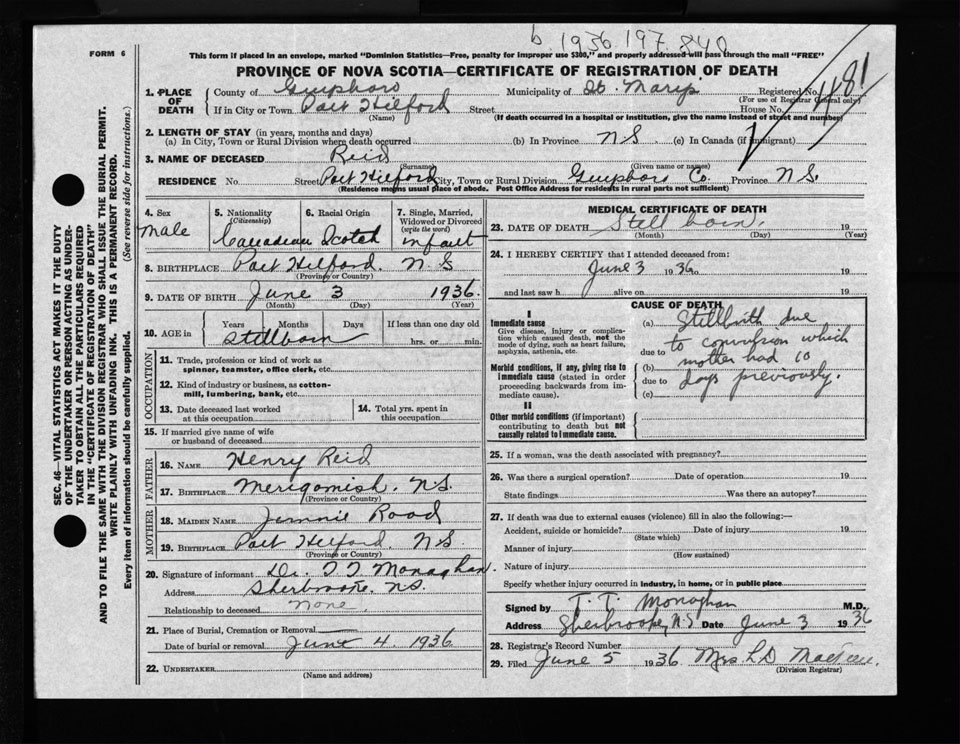 b 1936 197 840
FORM 6
This form if placed in an envelope, marked "Dominion Statistics—Free, penalty for improper use $300," and properly addressed will pass through the mail "FREE"
PROVINCE OF NOVA SCOTIA—CERTIFICATE OF REGISTRATION OF DEATH
1. PLACE OF DEATH
County of Guysboro Municipality of St. Marys Registered No. 481
(For use of Registrar General only)
If in City or Town Port Hilford Street House No.
(Name) (If death occurred in a hospital or institution, give the name instead of street and number)
2. LENGTH OF STAY (in years, months and days)
(a) In City, Town or Rural Division where death occurred (b) In Province NS (c) In Canada (if immigrant)
3. NAME OF DECEASED Reid
(Surname) (Given name or names)
RESIDENCE No. Street Port Hilford City, Town or Rural Division Guysboro Co. Province N.S.
(Residence means usual place of abode. Post Office Address for residents in rural parts not sufficient)
4. Sex
male
5. Nationality
(Citizenship)
Canadian
6. Racial Origin
Scotch
7. Single, Married, Widowed or Divorced
(write the word)
infant
8. BIRTHPLACE Port Hilford. N.S
(Province or Country)
9. DATE OF BIRTH June 3 1936.
(Month) (Day) (Year)
10. AGE in
Years Months Days If less than one day old
Stillborn hrs. or min.
OCCUPATION
11. Trade, profession or kind of work as
spinner, teamster, office clerk, etc.
12. Kind of industry or business, as cotton-
mill, lumbering, bank, etc.
13. Date deceased last worked
at this occupation
14. Total yrs. spent in
this occupation
15. If married give name of wife
or husband of deceased
FATHER
16. NAME Henry Reid
17. BIRTHPLACE Merigomish. N.S.
(Province or Country)
MOTHER
18. MAIDEN NAME Jimmie Rood
19. BIRTHPLACE Port Hilford, N.S.
(Province or Country)
20. Signature of informant Dr. T T Monaghan.
Address Sherbrooke, N.S.
Relationship to deceased None.
21. Place of Burial, Cremation or Removal
Date of burial or removal June 4. 1936
22. UNDERTAKER
(Name and address)
MEDICAL CERTIFICATE OF DEATH
23. DATE OF DEATH Still born
(Month) (Day) (Year)
24. I HEREBY CERTIFY that I attended deceased from:
June 3 1936 to 19
and last saw h alive on 19
CAUSE OF DEATH
I
Immediate cause
Give disease, injury or complica-
tion which caused death, not the
mode of dying, such as heart failure,
asphyxia, asthenia, etc.
Morbid conditions, if any, giving rise to
immediate cause (stated in order
proceeding backwards from im-
mediate cause).
II
Other morbid conditions (if important)
contributing to death but not
causally related to immediate cause.
(a) Stillbirth due
due to to convulsion which
(b) mother had 10
due to days previously.
(c)
25. If a woman, was the death associated with pregnancy?
26. Was there a surgical operation? Date of operation 19
State findings Was there an autopsy?
27. If death was due to external causes (violence) fill in also the following:—
Accident, suicide or homicide? Date of injury 19
(State which)
Manner of injury
(How sustained)
Nature of injury
Specify whether injury occurred in industry, in home, or in public place
Signed by T. T. Monaghan M.D.
Address Sherbrooke, N.S Date June 3 1936
28. Registrar's Record Number
29. Filed June 5 1936. Mrs. L D
(Division Registrar)
SEC. 46—VITAL STATISTICS ACT MAKES IT THE DUTY
OF THE UNDERTAKER OR PERSON ACTING AS UNDER-
TAKER TO OBTAIN ALL THE PARTICULARS REQUIRED
IN THE "CERTIFICATE OF REGISTRATION OF DEATH"
AND TO FILE THE SAME WITH THE DIVISION REGISTRAR WHO SHALL ISSUE THE BURIAL PERMIT.
WRITE PLAINLY WITH UNFADING INK. THIS IS A PERMANENT RECORD.
Every item of information should be carefully supplied. (See reverse side for instructions.)